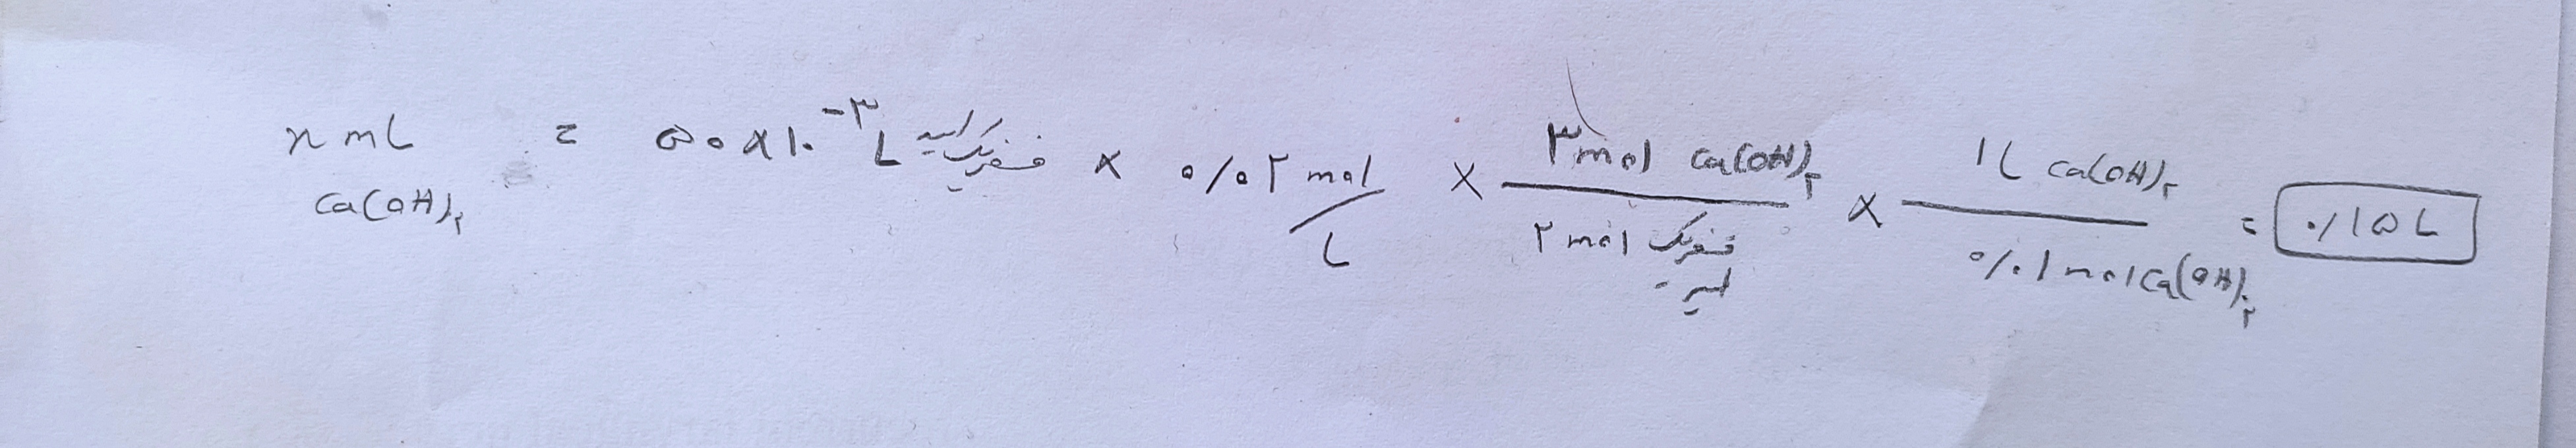 x mL Ca(OH)₂ = ۵۰×۱۰⁻³ L فسفریک اسید × ۰/۰۲ mol/L × ۳ mol Ca(OH)₂ / ۲ mol فسفریک اسید × ۱ L Ca(OH)₂ / ۰/۰۱ mol Ca(OH)₂ = ۰/۱۵ L